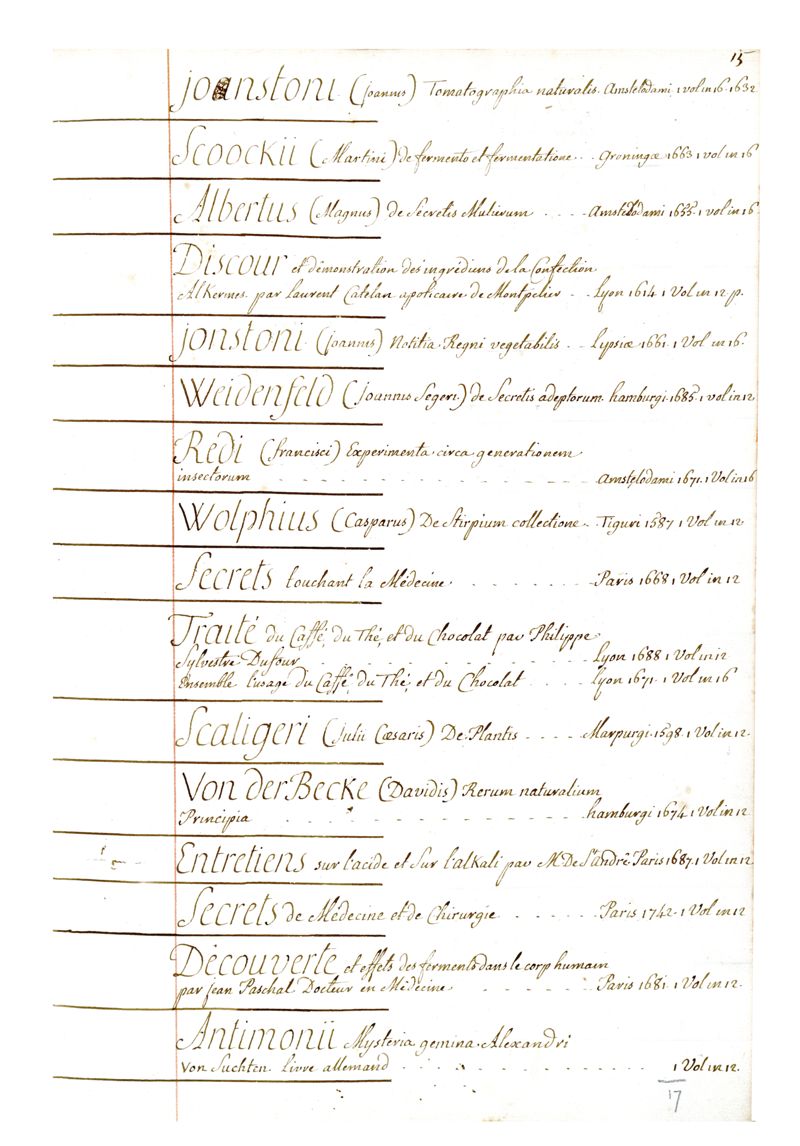 15
Joanstoni (Joannis) Tomatographia naturalis. Amstelodami 1 vol in 16. 1632
Scoockii (Martini) de fermento et fermentatione. . . Groningæ 1663 1 vol in 16
Albertus (Magnus) de Secretis Mulierum . . . . Amstelodami 1655. 1 vol in 16.
Discour et démonstration des ingrédiens de la Confection
AlKermes. par laurent Catelan apoticaire de Montpelier . . Lyon 1614 1 Vol in 12 p.
jonstoni (joannis) Notitia Regni vegetabilis . . Lypsiæ 1661. 1 Vol in 16.
Weidenfeld (Joannis Segeri.) de Secretis adeptorum. hamburgi. 1685. 1 vol in 12
Redi (francisci) Experimenta circa generationem
insectorum . . . . . . . . . . . . Amstelodami 1671. 1 Vol in 16
Wolphius (Casparus) De Stirpium collectione . . Tiguri 1587 1 Vol in 12
Secrets touchant la Médecine . . . . . . . Paris 1668 1 Vol in 12
Traité du Caffé, du Thé, et du Chocolat par Philippe
Sylvestre Dufour . . . . . . . . . . Lyon 1688 1 Vol in 12
Ensemble l'usage du Caffé, du Thé, et du Chocolat . . . . Lyon 1671. 1 Vol in 16
Scaligeri (Julii Cæsaris) De Plantis . . . . Marpurgi. 1598. 1 Vol in 12.
Von der Becke (Davidis) Rerum naturalium
Principia . . . . . . . . . . . . hamburgi 1674 1 Vol in 12
Entretiens sur l'acide et sur l'alkali par M. De St. André Paris 1687. 1 Vol in 12
Secrets de Médecine et de Chirurgie . . . . . Paris 1742. 1 Vol in 12
Découverte et effets des ferments dans le corp humain
par jean Paschal Docteur en Médecine . . . . . . Paris 1681. 1 Vol in 12.
Antimonii Mysteria gemina. Alexandri
Von Suchten. livre allemand . . . . . . . . . . . 1 Vol in 12.
17